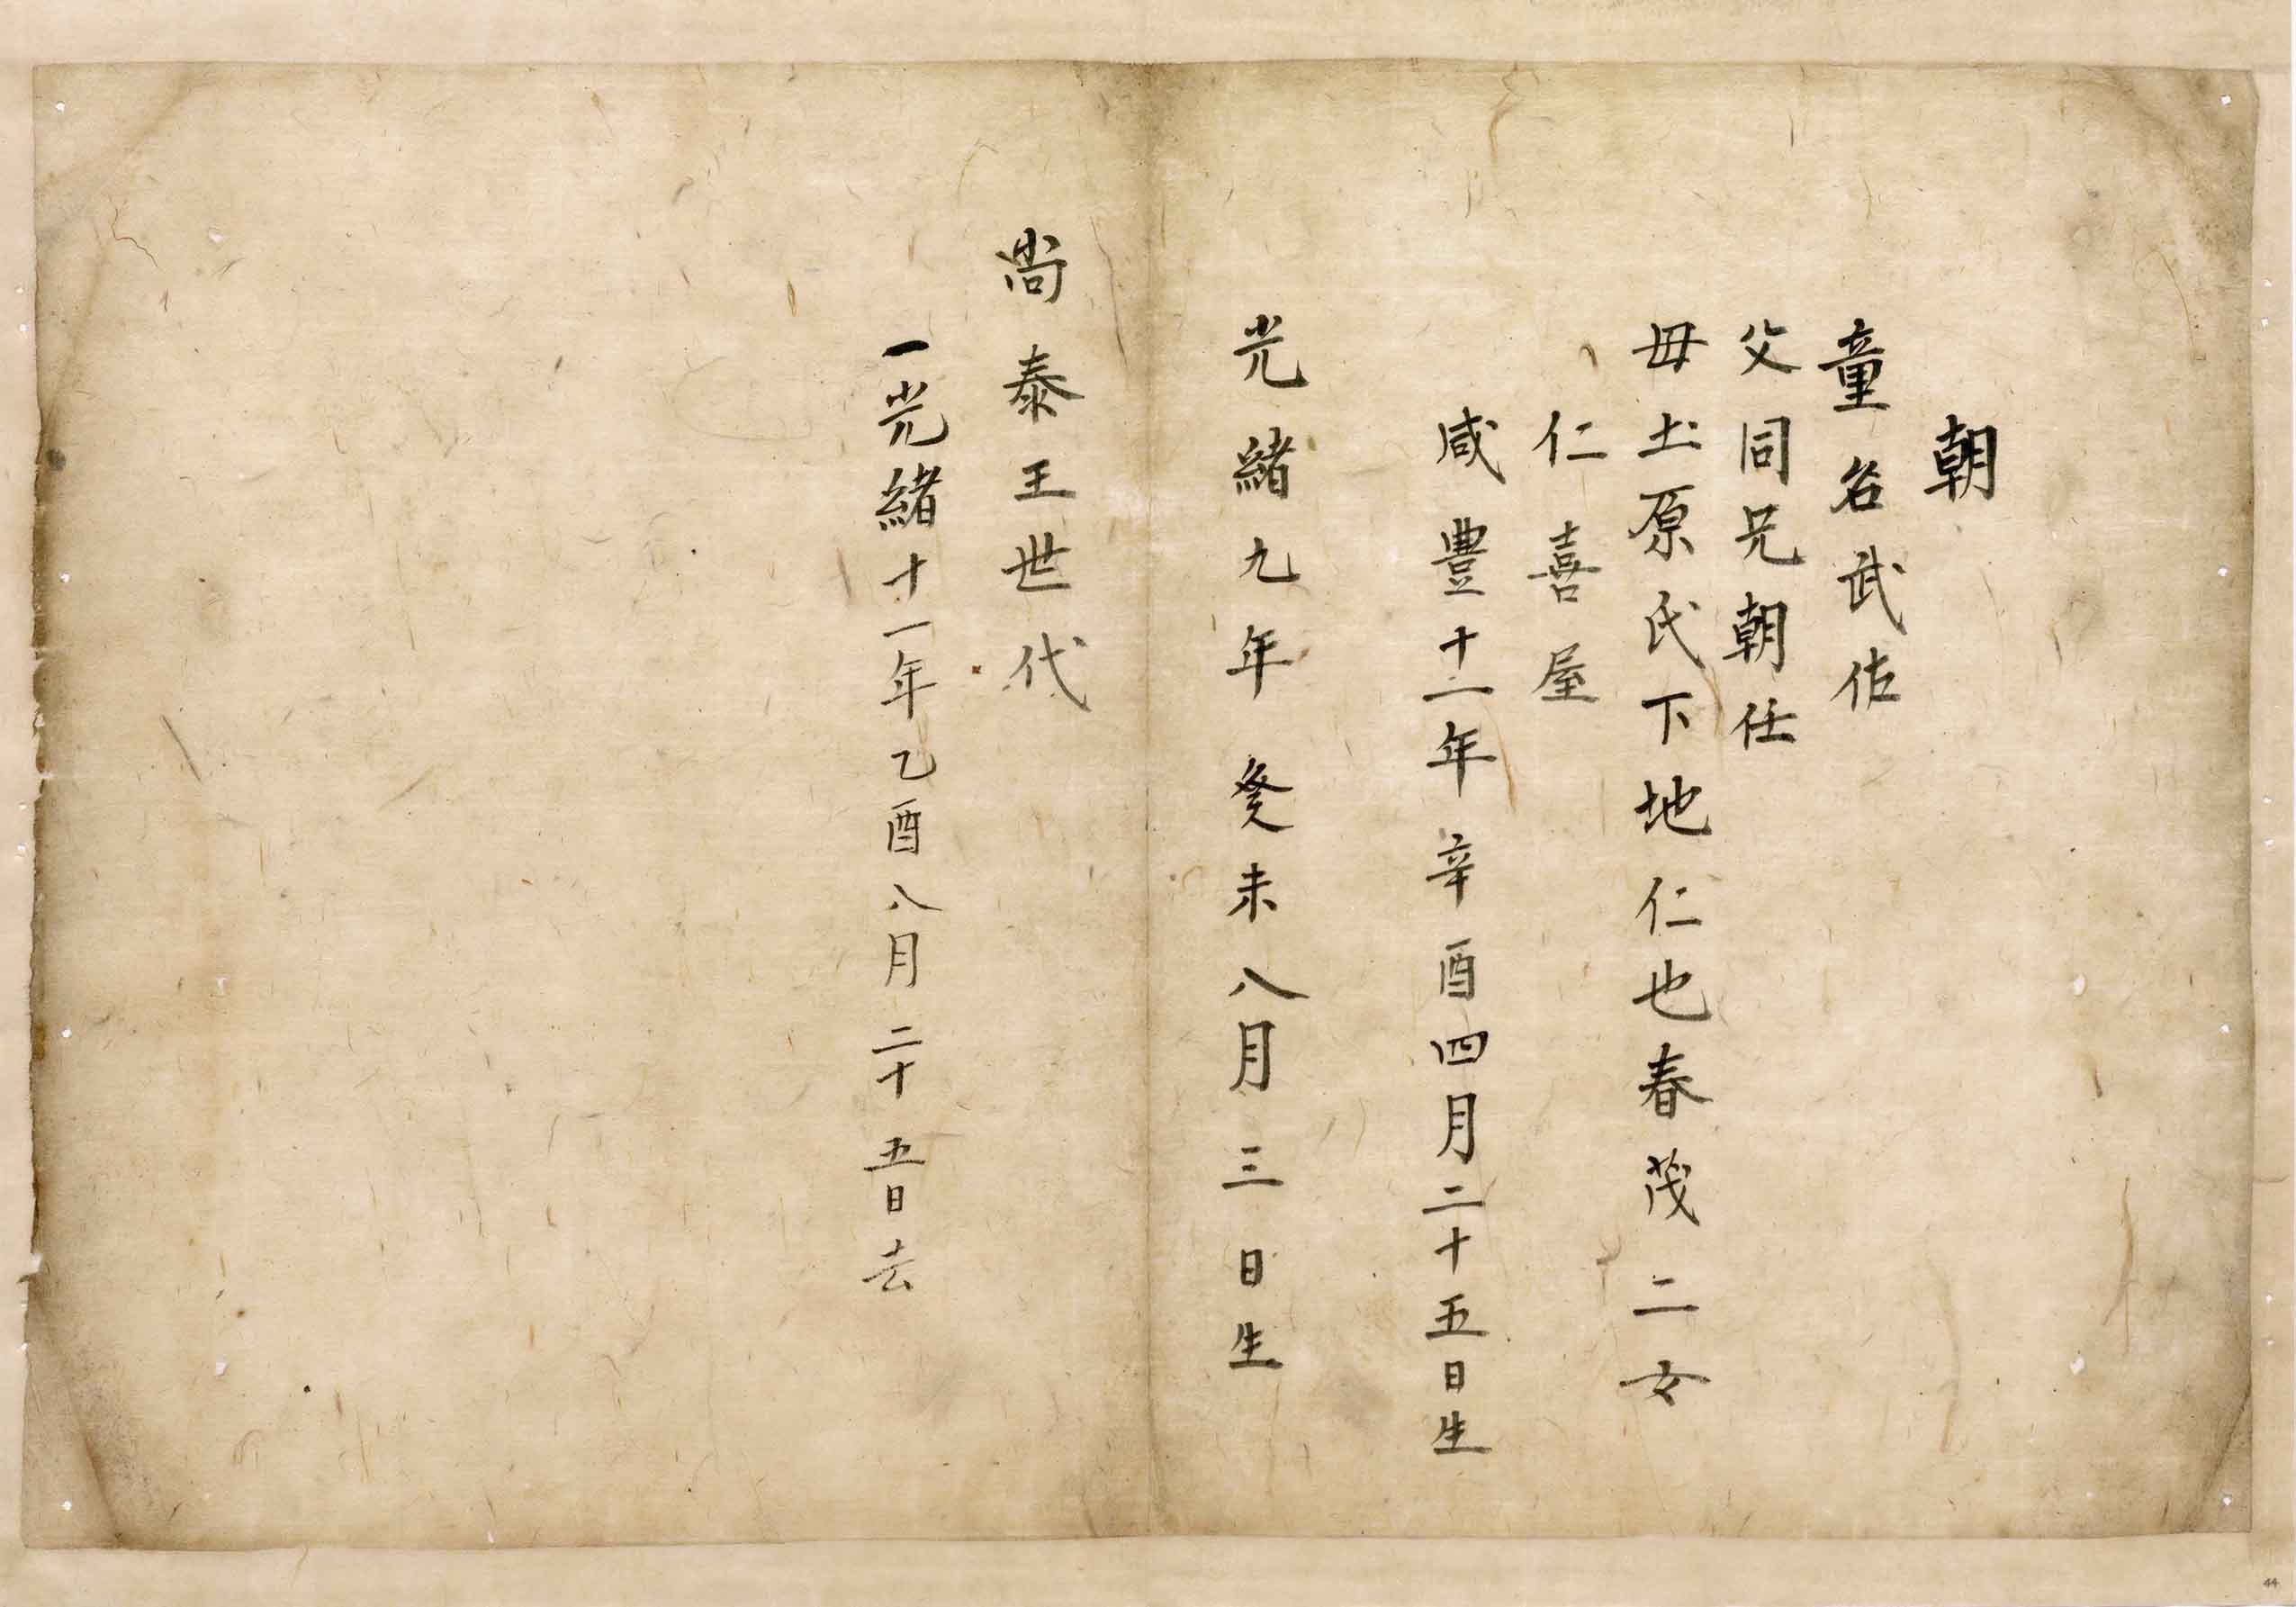 朝
童名武佐
父同兄朝仕
母土原氏下地仁也春茂二女
仁喜屋
咸豊十一年辛酉四月二十五日生
光緒九年癸未八月三日生
尚泰王世代
一光緒十一年乙酉八月二十五日去
44